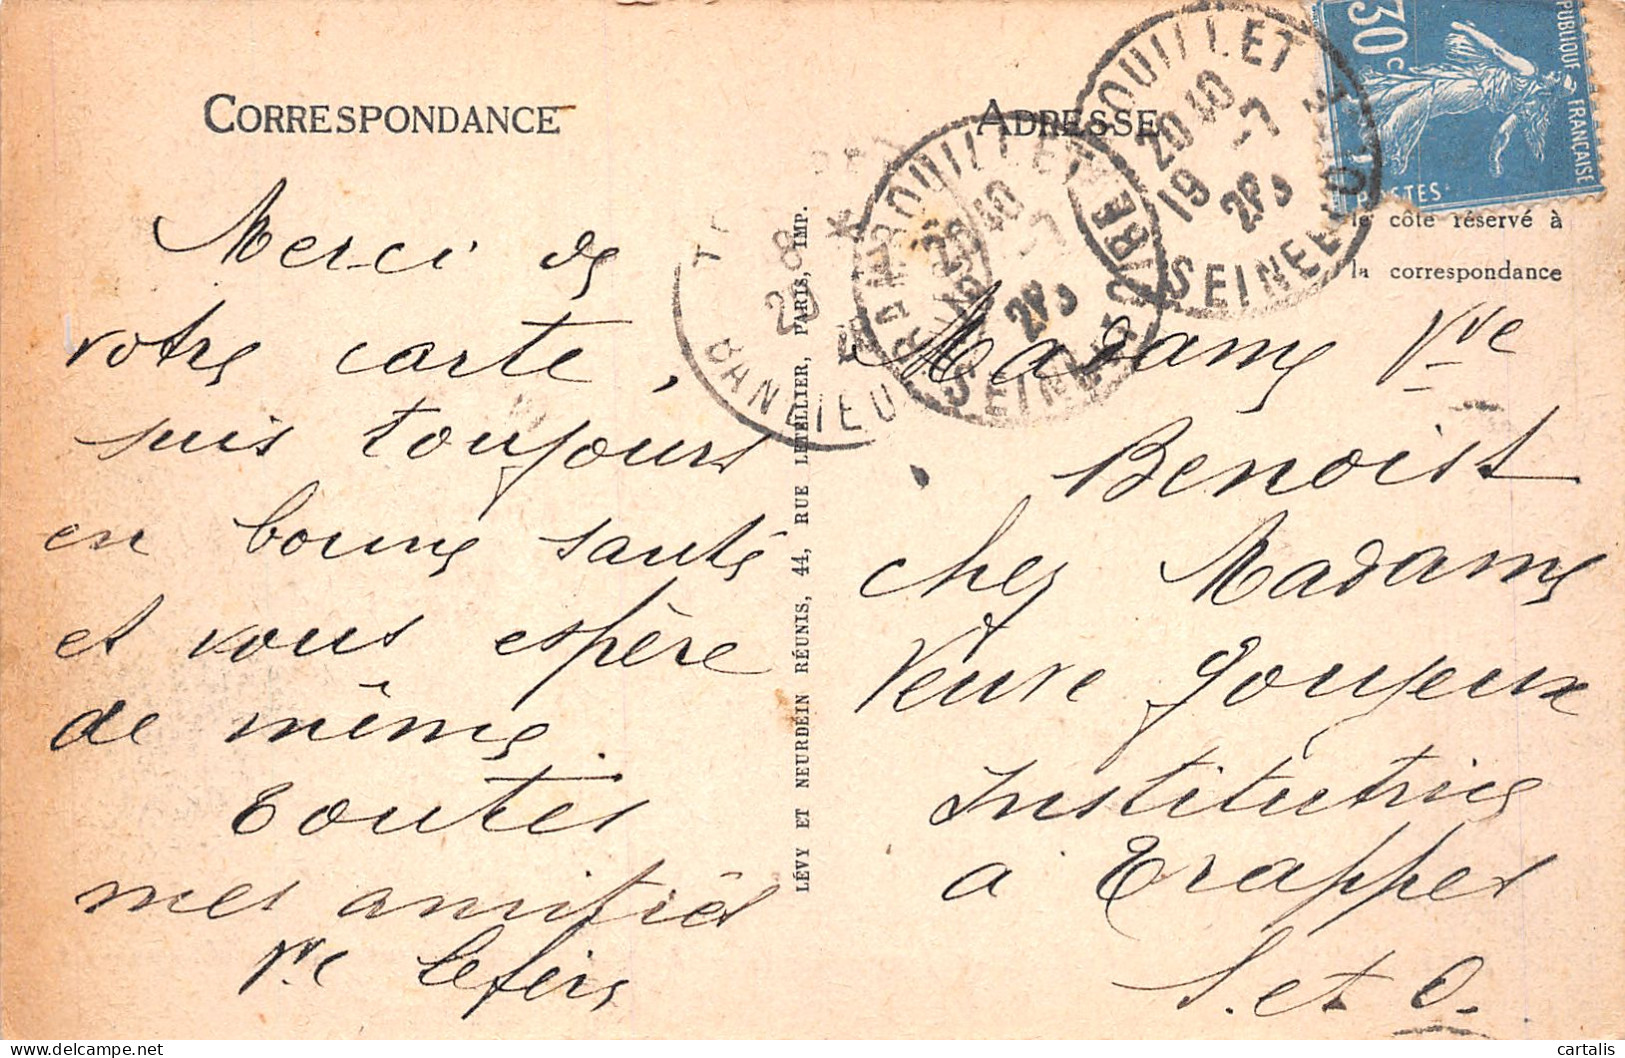 CORRESPONDANCE
Merci de
votre carte,
suis toujours
en bonne santé
et vous espère
de même.
Toutes
mes amitiés
Vve
LÉVY ET NEURDEIN RÉUNIS, 44, RUE LETELLIER, PARIS, IMP.
ADRESSE
le côté réservé à
la correspondance
Madame Vve
Benoist
chez Madame
Veuve Goujeux
Institutrice
a Trappes
S. et O.
30c
RÉPUBLIQUE FRANÇAISE
POSTES
RAMBOUILLET
20 40
19 -7
SEINE ET OISE
RAMBOUILLET
20 40
-7
SEINE ET OISE
BANLIEUE
cartalis